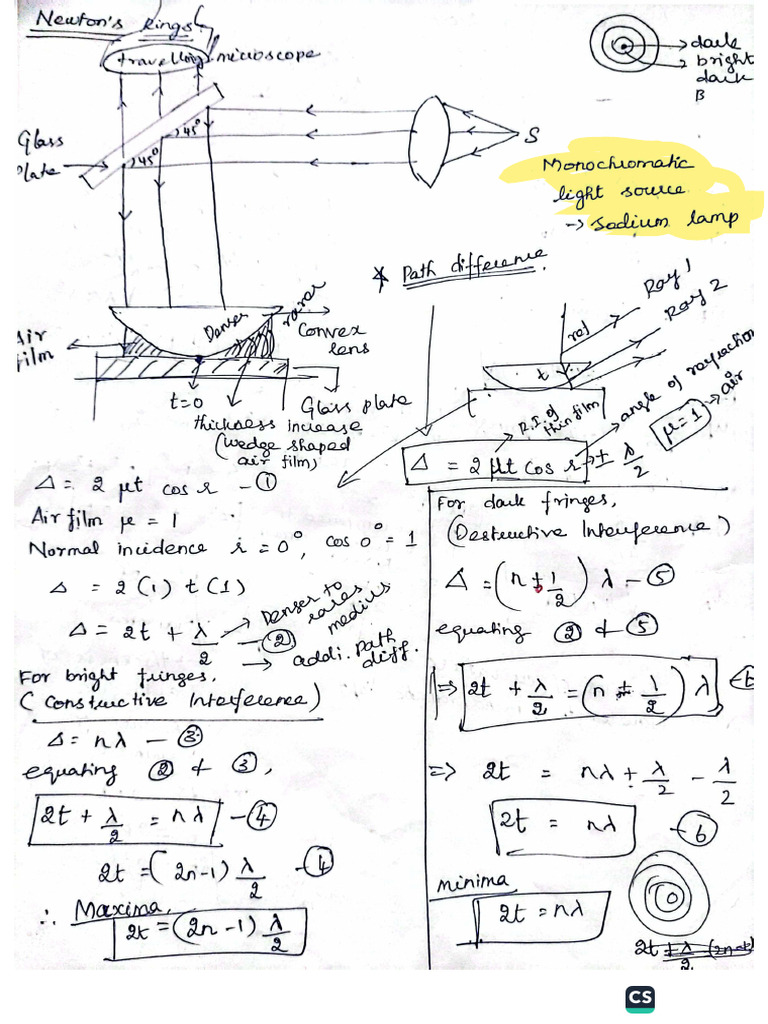 Newton's Rings
travelling microscope
dark
bright
dark
B
Glass
Plate
45°
45°
S
Monochromatic
light source
→ Sodium lamp
* Path difference
Ray 1
Ray 2
ref
t
Denser
rarer
Convex
lens
Air
film
t=0
Glass plate
thickness increase
(wedge shaped
air film)
R.I. of
thin film
angle of refraction
μ=1 → air
Δ = 2 μt cos r ± λ/2
Δ = 2 μt cos r - ①
Air film μ = 1
Normal incidence i = 0°, cos 0° = 1
Δ = 2 (1) t (1)
Δ = 2t + λ/2 - ②
Denser to
rarer
medium
addi. Path
diff.
For bright fringes,
(Constructive Interference)
Δ = nλ - ③
equating ② & ③,
2t + λ/2 = nλ - ④
2t = (2n-1) λ/2 - ④
∴ Maxima,
2t = (2n-1) λ/2
For dark fringes,
(Destructive Interference)
Δ = (n ± 1/2) λ - ⑤
equating ② & ⑤
⇒ 2t + λ/2 = (n ± 1/2) λ
⇒ 2t = nλ + λ/2 - λ/2
2t = nλ - ⑥
minima,
2t = nλ
2t + λ/2
CS